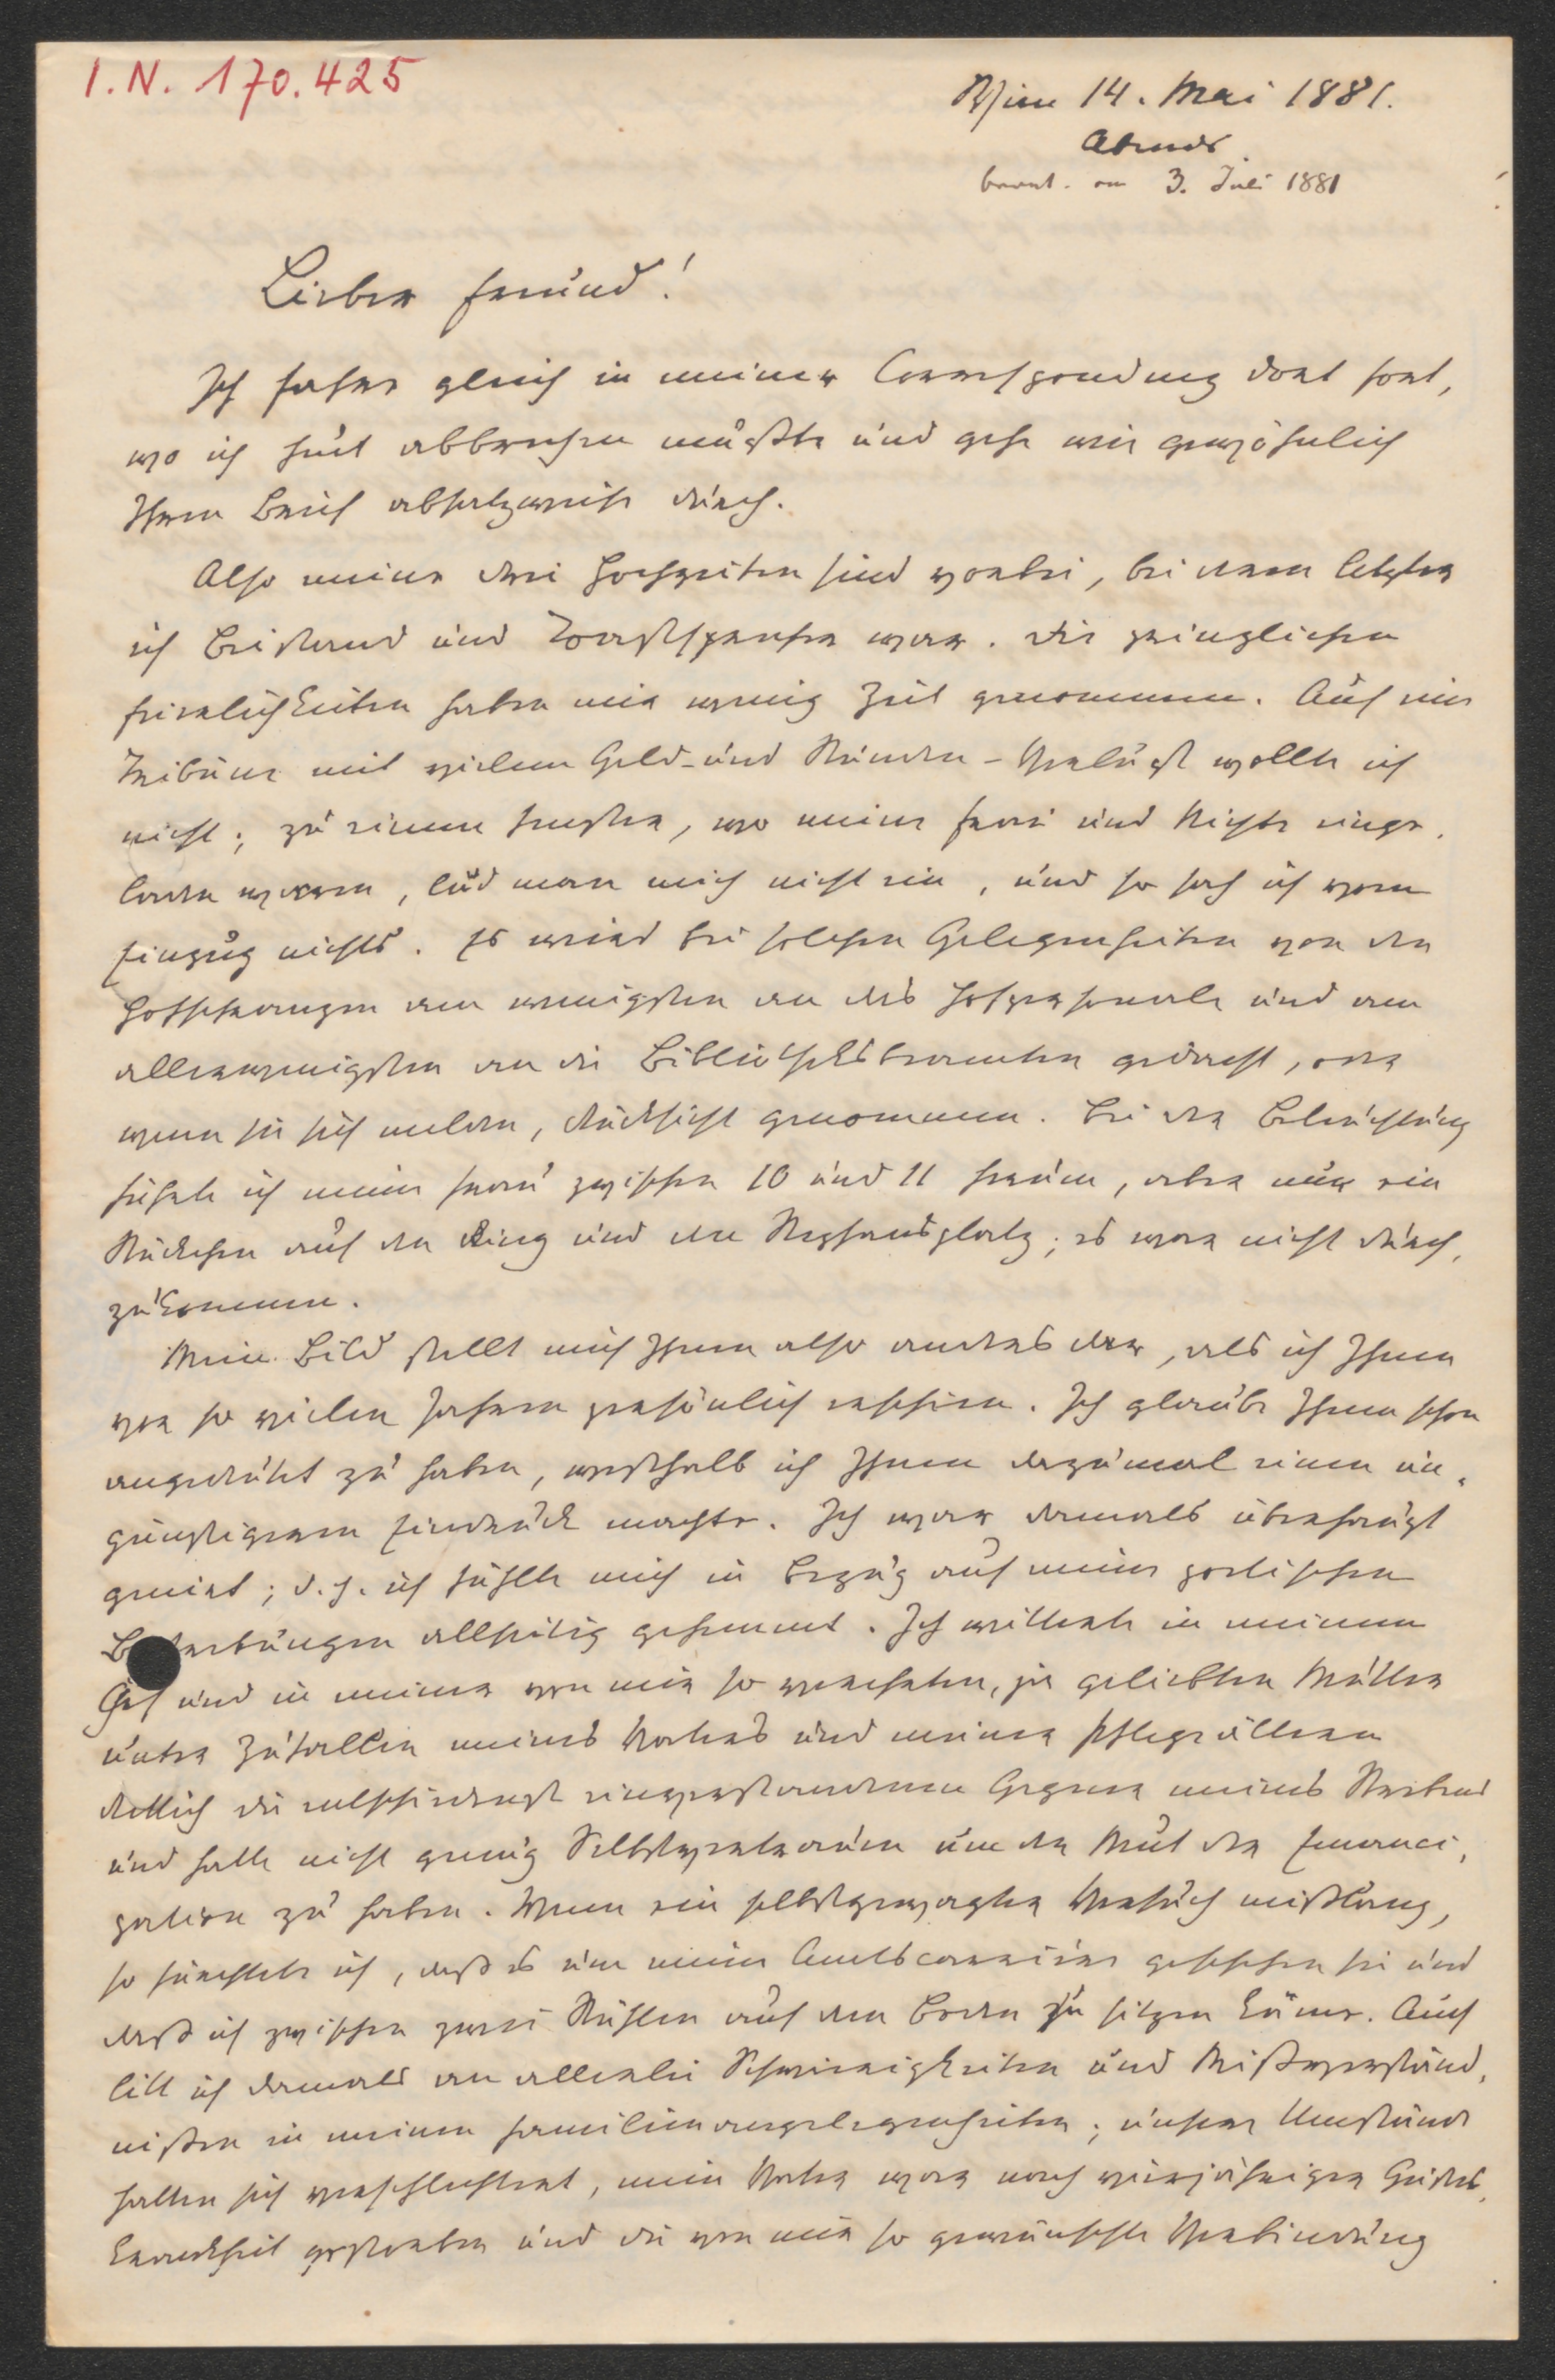 I.N. 170.425
Wien 14. Mai 1881.
Abends.
beant. am 3. Juli 1881
Lieber Freund!
Ich fahre gleich in meiner Correspondenz dort fort,
wo ich heut abbrechen mußte und gehe wie gewöhnlich
Ihren Brief absatzweise durch.
Also meine drei Hochzeiten sind vorbei, bei deren letzter
ich Beistand und Toastsprecher war. Die prinzlichen
Feierlichkeiten haben mir wenig Zeit genommen. Auf eine
Tribüne mit vielem Geld- und Stunden-Verlust wollte ich
nicht; zu einem Fenster, wo meine Frau und Nichte einge-
laden waren, lud man mich nicht ein, und so sah ich vom
Einzug nichts. Es wird bei solchen Gelegenheiten von den
Hofschranzen am wenigsten an das Hofpersonale und am
allerwenigsten an die Bibliotheksbeamten gedacht, oder
wenn sie sich melden, Rücksicht genommen. Bei der Beleuchtung
führte ich meine Frau zwischen 10 und 11 herum, aber nur ein
Stückchen auf den Ring und den Stephansplatz; es war nicht durch-
zukommen.
Mein Bild stellt mich Ihnen also anders dar, als ich Ihnen
vor so vielen Jahren persönlich erschien. Ich glaube Ihnen schon
angedeutet zu haben, weshalb ich Ihnen dazumal einen un-
günstigeren Eindruck machte. Ich war damals überhaupt
geniert; d.h. ich fühlte mich in Bezug auf meine poetischen
Bestrebungen allseitig gehemmt. Ich witterte in meinem
Chef und in meiner von mir so verehrten, ja geliebten Mutter
unter Zutallen meines Vaters und meiner Pflegeältern
redlich die entschiedenst einverstandenen Gegner meines Strebens
und hatte nicht genug Selbstvertrauen um den Mut der Emanci-
pation zu haben. Wenn ein selbstgewagter Versuch mißlang,
so fürchtete ich, daß es um meine Amtscarriere geschehen sei und
daß ich zwischen zwei Stühlen auf dem Boden zu sitzen käme. Auch
litt ich damals an allerlei Schwierigkeiten und Mißverständ-
nißen in meinen Familienangelegenheiten; unsere Umstände
hatten sich verschlechtert, mein Vater war nach vierjähriger Geistes-
krankheit gestorben und die von mir so gewünschte Verbindung